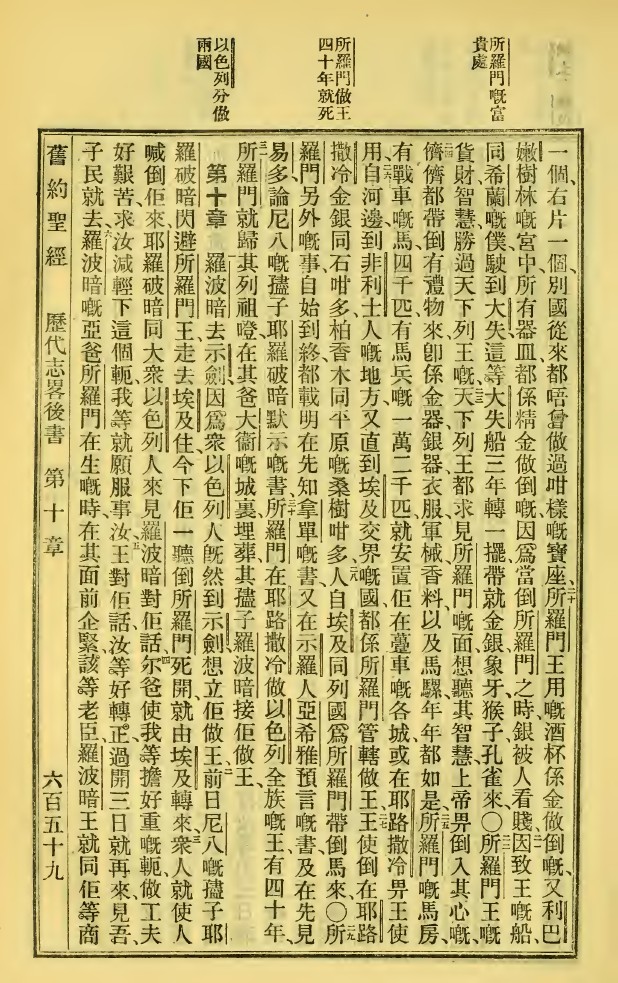 所羅門嘅富
貴處
所羅門做王
四十年就死
以色列分做
兩國
一個、右片一個、別國從來都唔曾做過咁樣嘅寶座、二十所羅門王用嘅酒杯係金做倒嘅、又利巴
嫩樹林嘅宮中所有器皿都係精金做倒嘅因爲當倒所羅門之時、銀被人看賤、二一因致王嘅船、
同希蘭嘅僕駛到大失、這等大失船三年轉一擺帶就金銀象牙猴子孔雀來〇二二所羅門王嘅
貨財智慧勝過天下列王嘅、二三天下列王都求見所羅門嘅面想聽其智慧上帝畀倒入其心嘅、
二四儕儕都帶倒有禮物來卽係金器銀器衣服軍械香料以及馬騾年年都如是、二五所羅門嘅馬房、
有戰車嘅馬四千匹、有馬兵嘅一萬二千匹、就安置佢在臺車嘅各城或在耶路撒冷畀王使
用、二六自河邊到非利士人嘅地方又直到埃及交界嘅國都係所羅門管轄做王、二七王使倒在耶路
撒冷金銀同石咁多、柏香木同平原嘅桑樹咁多、二八人自埃及同列國爲所羅門帶倒馬來、〇二九所
羅門另外嘅事自始到終都載明在先知拿單嘅書、又在示羅人亞希雅預言嘅書及在先見
易多論尼八嘅孻子耶羅破暗默示嘅書、三十所羅門在耶路撒冷做以色列全族嘅王有四十年、
三一所羅門就歸其列祖噔在其爸大衞嘅城裏埋葬其孻子羅波暗接佢做王、
第十章 一羅波暗去示劍因爲衆以色列人旣然到示劍想立佢做王、二前日尼八嘅孻子耶
羅破暗閃避所羅門王走去埃及住、今下佢一聽倒所羅門死開就由埃及轉來、三衆人就使人
喊倒佢來、耶羅破暗同大衆以色列人來見羅波暗對佢話、四尔爸使我等擔好重嘅軛、做工夫
好艱苦、求汝減輕下這個軛、我等就願服事汝、五王對佢話汝等好轉正過開三日就再來見吾、
子民就去、六羅波暗嘅亞爸所羅門在生嘅時、在其面前企緊該等老臣、羅波暗王就同佢等商
舊約聖經 歷代志畧後書 第十章 六百五十九